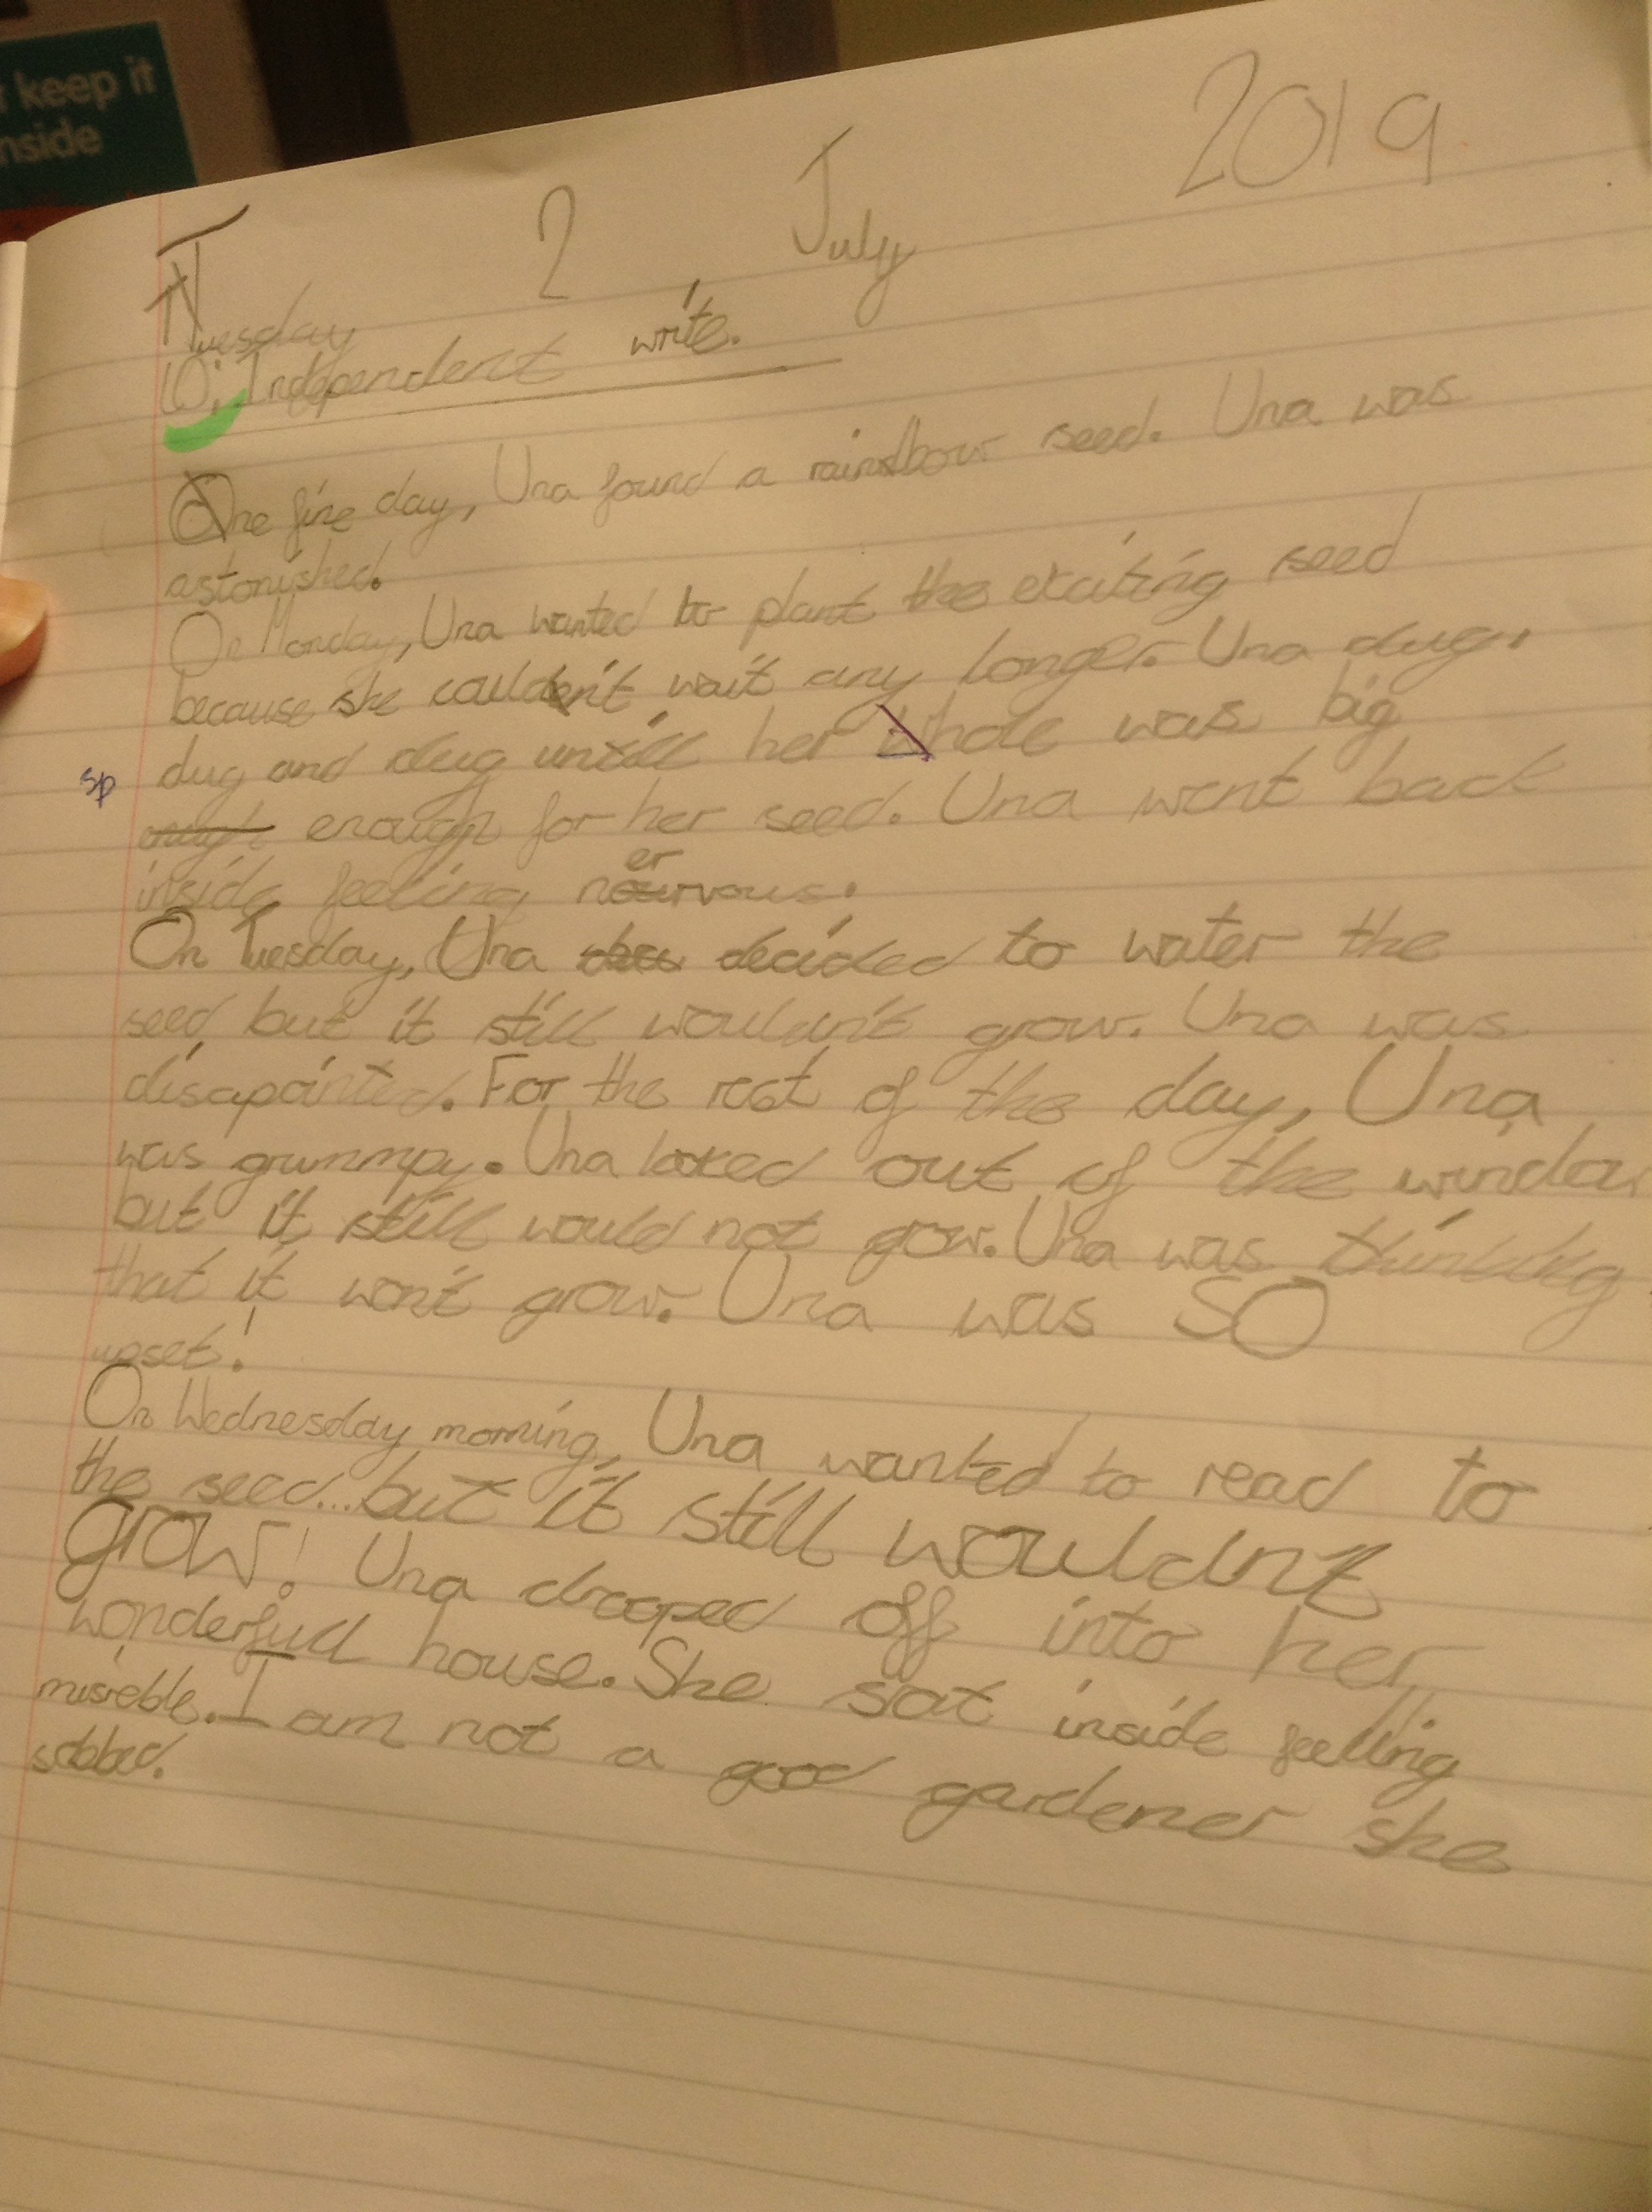 keep it
nside
2019
2 July
Tuesday
LO: Independent write.
One fine day, Una found a rainbow seed. Una was
astonished.
On Monday, Una wanted to plant the exciting seed
because she couldn't wait any longer. Una dug,
sp
dug and dug untill her hole was big
enough for her seed. Una went back
inside feeling nervous.
On Tuesday, Una decided to water the
seed but it still wouldn't grow. Una was
disapointed. For the rest of the day, Una
was grummpy. Una looked out of the window
but it still would not grow. Una was thinking
that it won't grow. Una was SO
upset!
On Wednesday morning, Una wanted to read to
the seed...but it still wouldn't
grow! Una drooped off into her
wonderfull house. She sat inside feelling
misreble. I am not a good gardener she
sobbed.